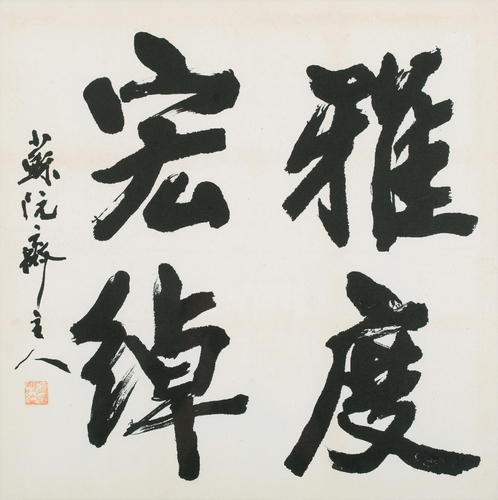 雅度
宏綽
小蘇阮齋主人